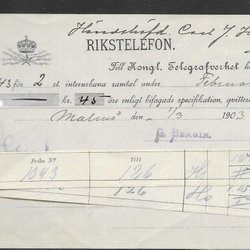 Håndsköfd. Carl J. H
RIKSTELEFON.
Till Kongl. Telegrafverket h
43 för 2 st. interurbana samtal under Februa
kr. 45 öre enligt bifogade specifikation, qvitter
Malmö den 1/3 1903
Från Nº Till
1043 126 Ho
126 Ho